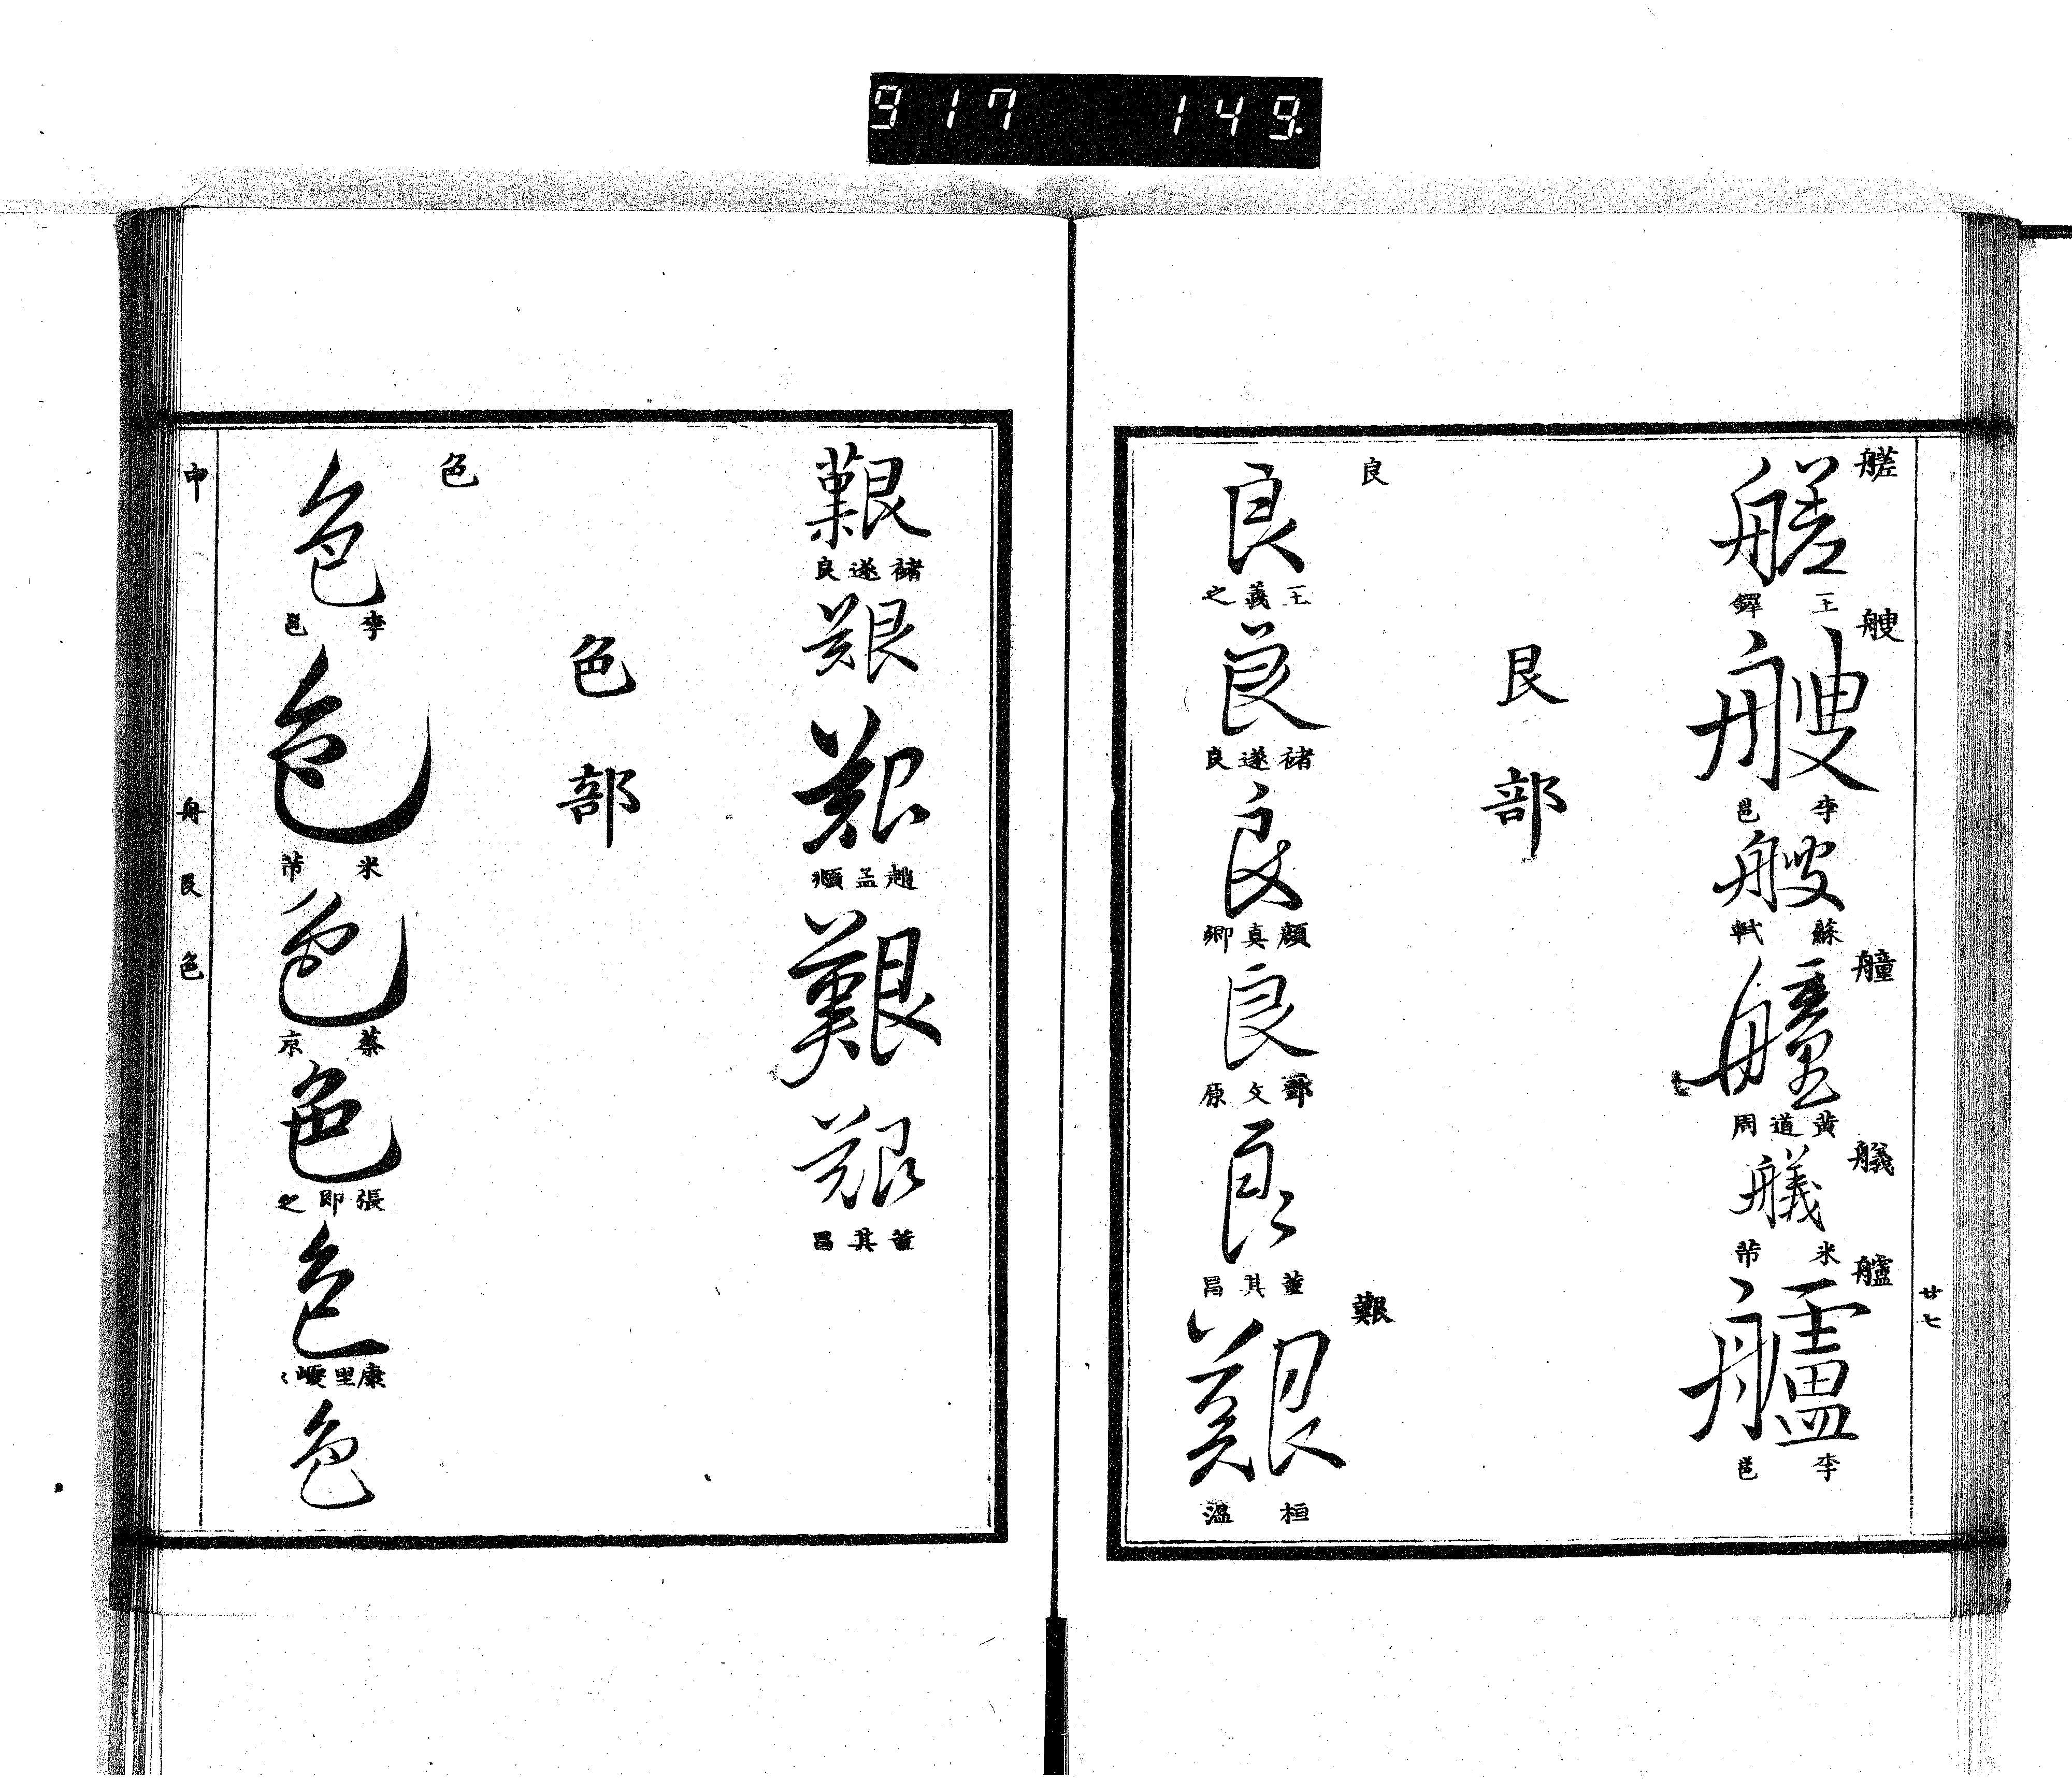 917 149.
廿七
艖
艖
王鐸
艘
艘
李邕
艘
蘇軾
艟
艟
黃道周
艤
艤
米芾
艫
艫
李邕
艮部
良
良
王羲之
良
褚遂良
良
顏真卿
良
鄧文原
良
董其昌
艱
艱
桓溫
艱
褚遂良
艱
艱
趙孟頫
艱
艱
董其昌
色部
色
色
李邕
色
米芾
色
蔡京
色
張即之
色
康里巙〻
色
申 舟艮色